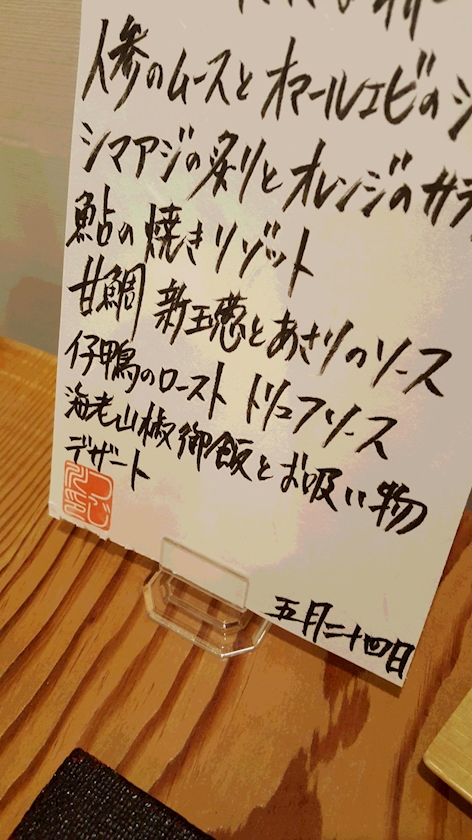 人参のムースとオマールエビのジ
シマアジの炙りとオレンジのサラ
鮎の焼きリゾット
甘鯛 新玉葱とあさりのソース
仔鴨のロースト トリュフソース
海老山椒御飯とお吸い物
デザート
五月二十四日